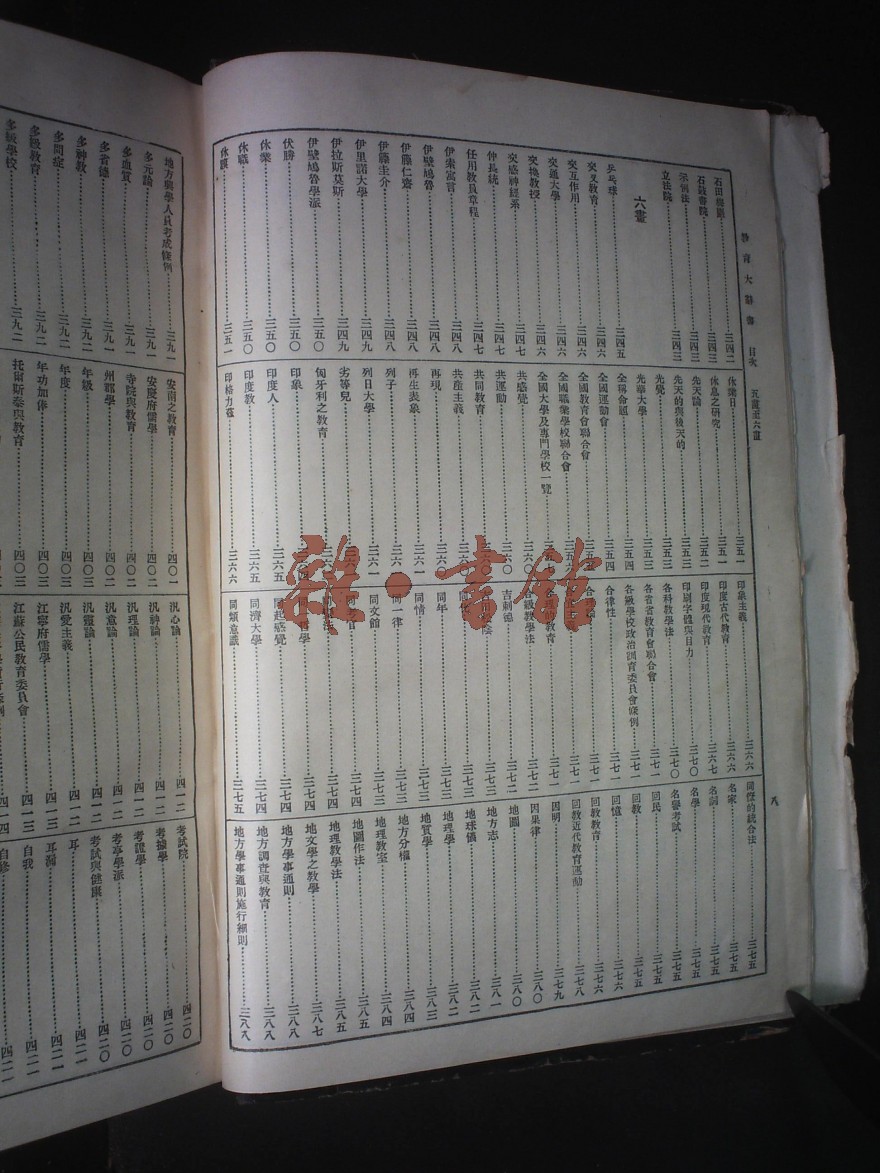 教育大辭書 目次 五畫至六畫
八
石鼓書院……三四三
示例法……三四三
立法院……三四三
六畫
乒乓球……三四五
交叉教育……三四六
交互作用……三四六
交通大學……三四六
交換教授……三四六
交感神經系……三四六
仲長統……三四七
任用教員章程……三四七
伊索寓言……三四八
伊壁鳩魯……三四八
伊藤仁齋……三四八
伊藤圭介……三四九
伊里諾大學……三四九
伊拉斯莫斯……三四九
伊壁鳩魯學派……三五〇
伏勝……三五〇
休業……三五〇
休職……三五〇
休謨……三五一
休業日……三五一
休息之研究……三五一
先天論……三五三
先天的與後天的……三五三
光覺……三五三
光華大學……三五三
全稱命題……三五四
全國運動會……三五四
全國教育會聯合會
全國職業學校聯合會
全國大學及專門學校一覽
共感覺……三六〇
共運動
共同教育
共產主義
再現……三六一
再生表象……三六一
列子……三六一
列日大學……三六一
劣等兒
匈牙利之教育
印象
印度人……三六五
印度教……三六五
印格力茲……三六六
印象主義……三六六
印度古代教育……三六六
印度現代教育……三六七
印刷字體與目力……三七〇
各科教學法……三七〇
各省省教育會聯合會……三七一
各級學校政治訓育委員會條例……三七一
合律性……三七一
同年……三七三
同情……三七三
同一律……三七三
同文館……三七三
同濟大學……三七四
同類意識……三七五
同時的統合法……三七五
名家……三七五
名詞……三七五
名學……三七五
名譽考試……三七五
回民……三七五
回教……三七五
回憶……三七六
回教教育……三七六
回教近代教育運動……三七八
因明……三七九
因果律……三八〇
地圖……三八〇
地方志……三八二
地球儀……三八二
地理學……三八二
地質學……三八三
地方分權……三八四
地理教室……三八四
地圖作法……三八五
地理教學法……三八五
地文學之教學……三八七
地方學事通則……三八八
地方調查與教育……三八八
地方學事通則施行細則……三八八
地方興學人員考成條例……三九一
多元論……三九一
多血質……三九一
多省德……三九一
多神教……三九二
多問症……三九二
多段教育……三九二
多級學校……三九二
安南之教育……四〇一
安慶府儒學……四〇二
寺院與教育……四〇二
州郡學……四〇二
年級……四〇三
年度……四〇三
年功加俸……四〇三
托爾斯泰與教育……四〇三
汎心論……四一二
汎神論……四一二
汎理論……四一二
汎意論……四一二
汎靈論……四一二
汎愛主義……四一二
江寧府儒學……四一三
江蘇公民教育委員會……四一三
考試院……四二〇
考據學……四二〇
考證學……四二〇
考亭學派……四二〇
考試與健康……四二〇
耳……四二一
耳漏……四二一
自我……四二一
自修
雜·書館